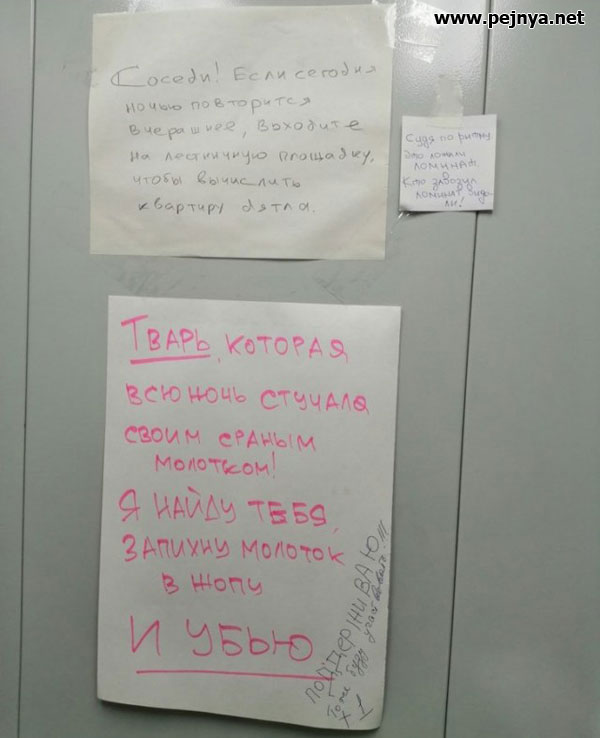 www.pejnya.net
Соседи! Если сегодня
ночью повторится
вчерашнее, выходите
на лестничную площадку,
чтобы вычислить
квартиру дятла.
Судя по ритму
это ложили
ломинат.
Кто завозил
ломинат, видо-
ли!
Тварь, которая
всю ночь стучала
своим сраным
молотком!
Я найду тебя,
запихну молоток
в жопу
и убью
ПОДДЕРЖИВАЮ!!!
Тоже буду участвовать